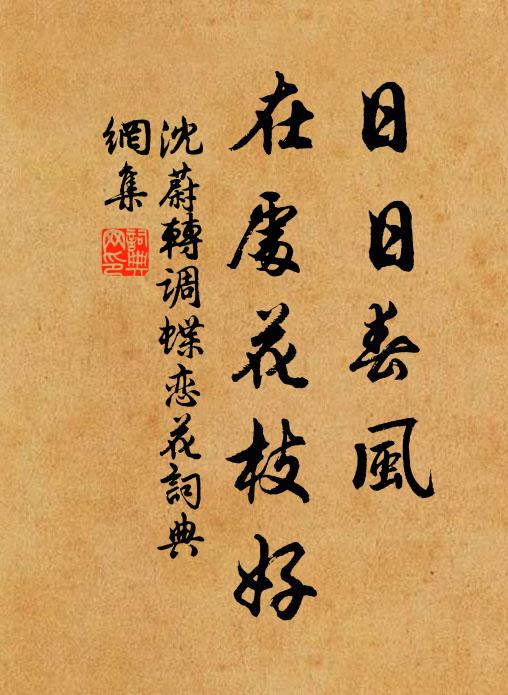 日日春風
在處花枝好
沈蔚轉調蝶恋花詞典
網集
詞典
網印